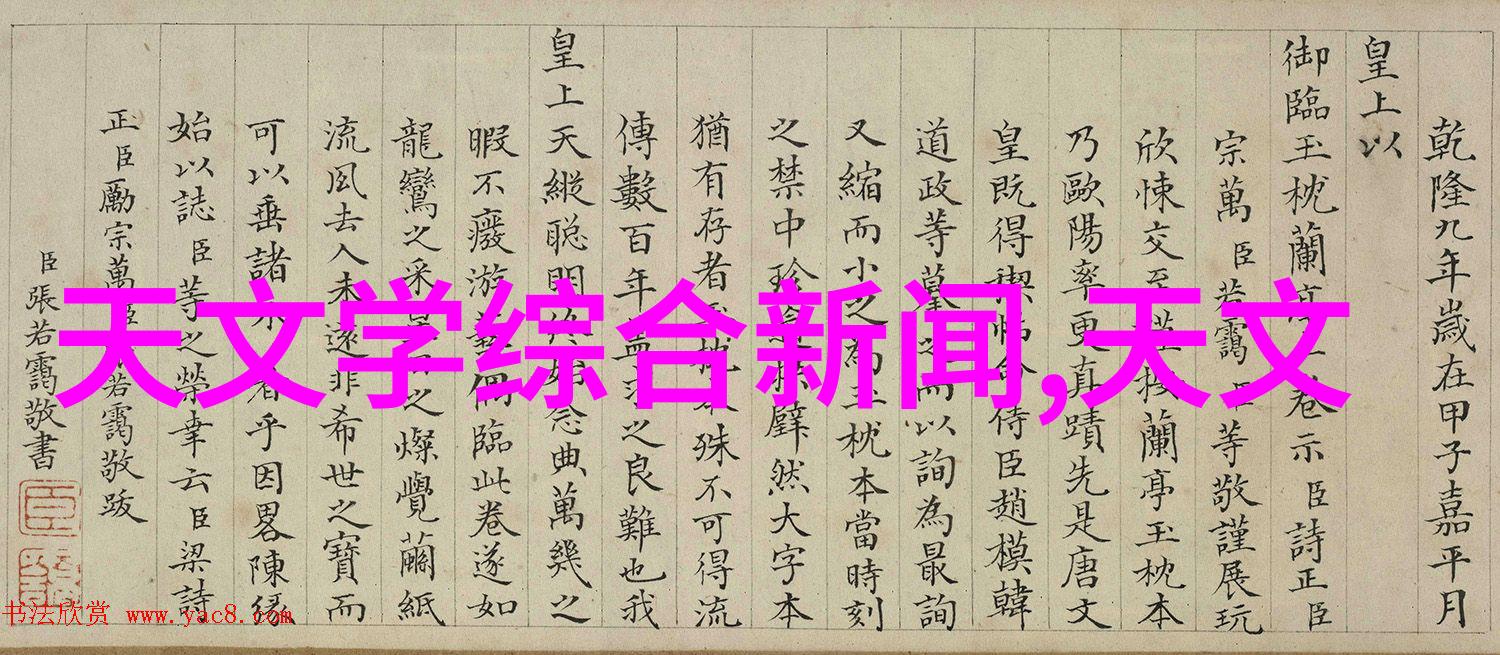 乾隆九年歲在甲子嘉平月
皇上以
御臨玉枕蘭亭一卷示臣詩正臣
宗萬臣若靄臣等敬謹展玩
欣悚交至謹按蘭亭玉枕本
乃歐陽率更真蹟先是唐文
皇既得禊帖命侍臣趙模韓
道政等摹之而以詢為最詢
又縮而小之為玉枕本當時刻
之禁中珍逾拱璧然大字本
猶有存者玉枕本殊不可得流
傳數百年蓋求之良難也我
皇上天縱聰明終始念典萬幾之
暇不癈游藝偶臨此卷遂如
龍鸞之采星日之燦覺繭紙
流風去人未遠非希世之寶而
可以垂諸永者乎因畧陳緣
始以誌臣等之榮幸云臣梁詩
正臣勵宗萬臣若靄敬跋
臣張若靄敬書
天文学综合新闻,天文
书法欣赏 www.yac8.com